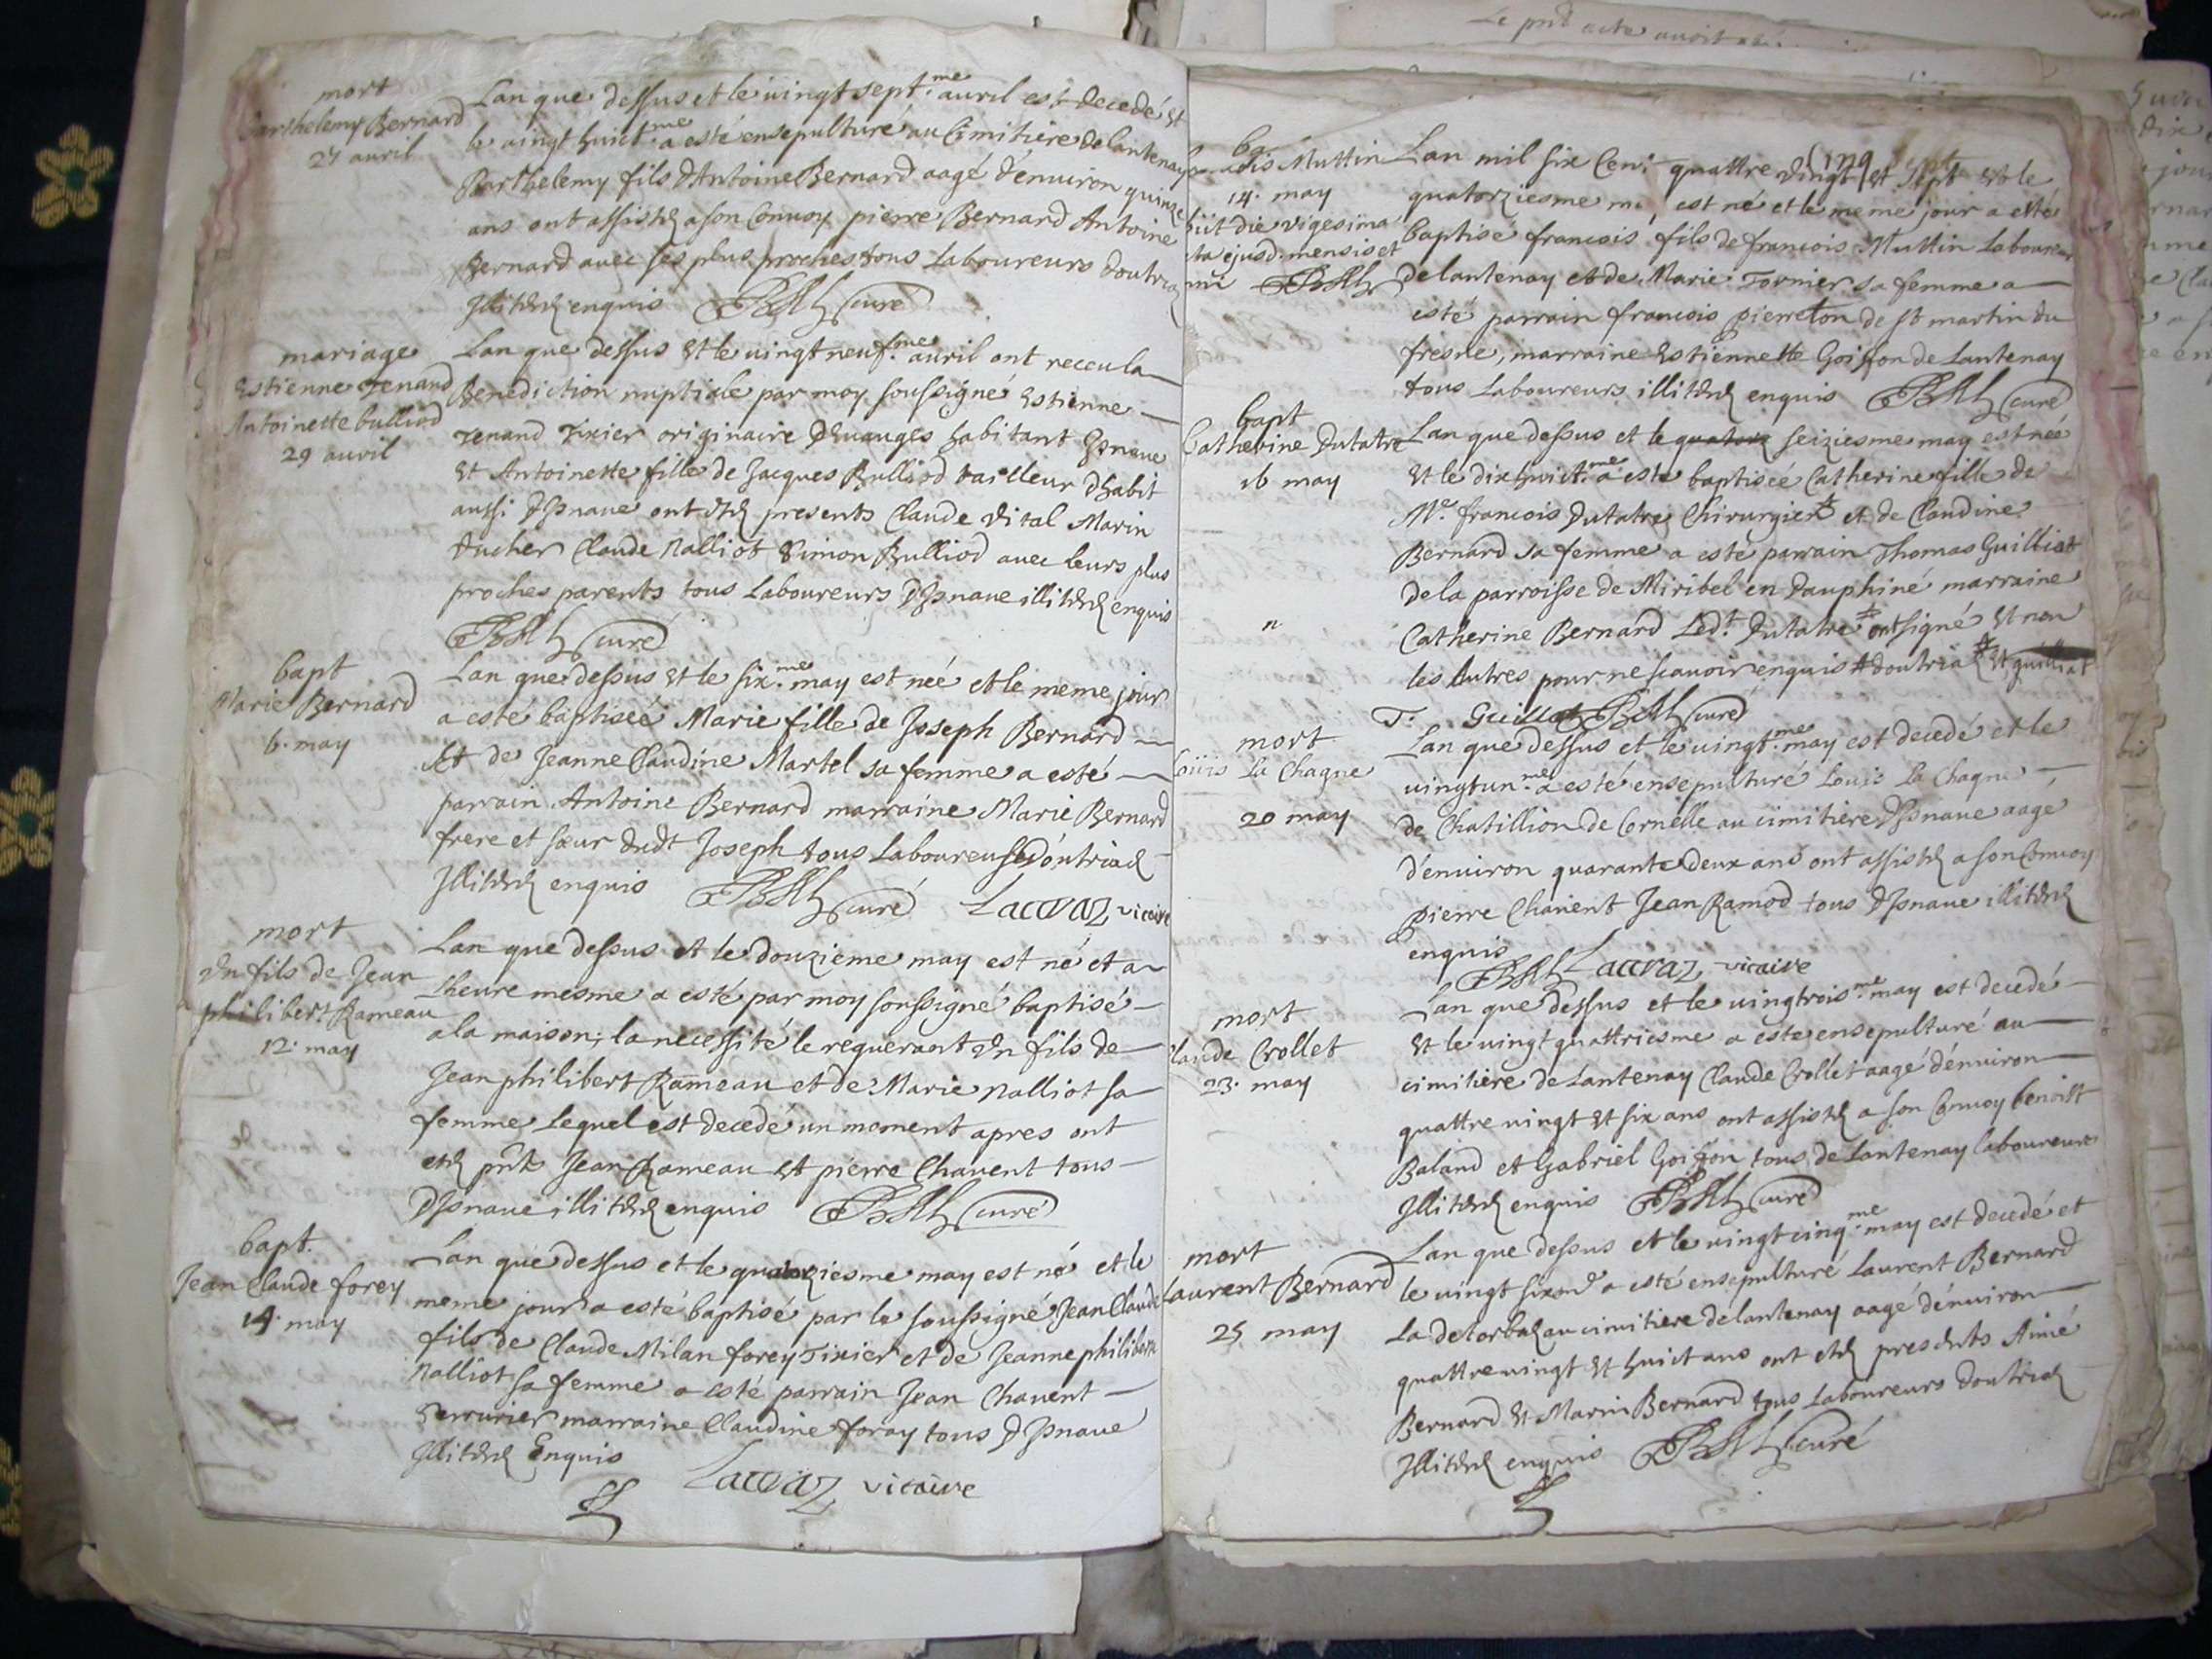 Le pnt acte avoit
mort
Barthelemy Bernard
27 avril
Lan que dessus et le vingt sept.me avril est decedé et
le vingt huict.me a esté ensepulturé au Cimitiere de lantenay
Barthelemy fils d'Antoine Bernard aagé d'environ quinze
ans ont assistez a son Convoy pierre Bernard Antoine
Bernard avec ses plus proches tous Laboureurs doutriaz
Illiterez enquis curé
mariage
Estienne Tenand
Antoinette bulliod
29 avril
Lan que dessus et le vingt neuf.me avril ont receu la
Benediction nuptiale par moy soussigné Estienne
Tenand Tixier originaire habitant Isnave
Et Antoinette fille de Jacques Bulliod tailleur d'habit
aussi d'Isnave ont etez presents Claude Vital Marin
Ducher Claude Nalliot Simon Bulliod avec leurs plus
proches parents tous Laboureurs d'Isnave illiterez enquis
curé
bapt
Marie Bernard
6. may
Lan que dessus et le six.me may est née et le meme jour
a esté baptiseé Marie fille de Joseph Bernard
Et de Jeanne Claudine Martel sa femme a esté
parrain Antoine Bernard marraine Marie Bernard
frere et sœur dudt Joseph tous Laboureurs d'outriaz
Illiterez enquis curé Lacraz vicaire
mort
Un fils de Jean
philibert Rameau
12. may
Lan que dessus et le douzieme may est né et a
Lheure mesme a esté par moy soussigné baptisé
a la maison, la necessité le requerant Un fils de
Jean philibert Rameau et de Marie Nalliot sa
femme Lequel est decedé un moment apres ont
etez pnts Jean Rameau et pierre Chavent tous
d'Isnave illiterez enquis curé
bapt.
Jean Claude forey
14. may
Lan que dessus et le quatorziesme may est né et le
meme jour a esté baptisé par le soussigné Jean Claude
fils de Claude Milan forey Tixier et de Jeanne philiberte
Nalliot sa femme a esté parrain Jean Chavent
serrurier marraine Claudine foray tous d'Isnave
Illiterez Enquis
Lacraz vicaire
Mutin
14. may
die vigesima
ejusd. mensis et
Lan mil six Cent quattre Vingt et sept et le
quatorziesme est né et le meme jour a esté
baptisé francois fils de francois Muttin Laboureur
de lantenay et de Marie Tornier sa femme a
esté parrain francois pierreton de st martin du
fresne, marraine Estiennette Goiffon de Lantenay
tous Laboureurs illiterez enquis curé
bapt
Catherine Dutatre
16 may
n
Lan que dessus et le quatorz seiziesme may est neé
Et le dix huict.me a esté baptiseé Catherine fille de
Me. francois Dutatre Chirurgien et de Claudine
Bernard sa femme a esté parrain Thomas Guilliat
de la parroisse de Miribel en Dauphiné marraine
Catherine Bernard Led.t Dutatre ont signé Et non
les Autres pour ne scavoir enquis doutriaz Et guilliat
T. Guillat curé
mort
Loüis La Chagne
20 may
Lan que dessus et le vingt.me may est decedé et le
vingt un.me a esté ensepulturé Louis La Chagne
de Chatillion de Cornelle au cimitiere d'Isnave aagé
d'environ quarante deux ans ont assistez a son Convoy
pierre Chavent Jean Ramod tous d'Isnave illiterez
enquis
Lacraz vicaire
mort
Claude Crollet
23. may
Lan que dessus et le vingtrois.me may est decedé
Et le vingt quattriesme a esté ensepulturé au
cimitiere de Lantenay Claude Crollet aagé d'environ
quattre vingt Et six ans ont assistez a son Convoy benoist
Baland et Gabriel Goiffon tous de Lantenay laboureurs
Illiterez enquis curé
mort
Laurent Bernard
25. may
Lan que dessus et le vingt cinq.me may est decedé et
le vingt a esté ensepulturé Laurent Bernard
au cimitiere de lantenay aagé d'environ
quattre vingt Et huict ans ont etez presents Aimé
Bernard Et Marin Bernard tous Laboureurs doutriaz
Illiterez enquis curé